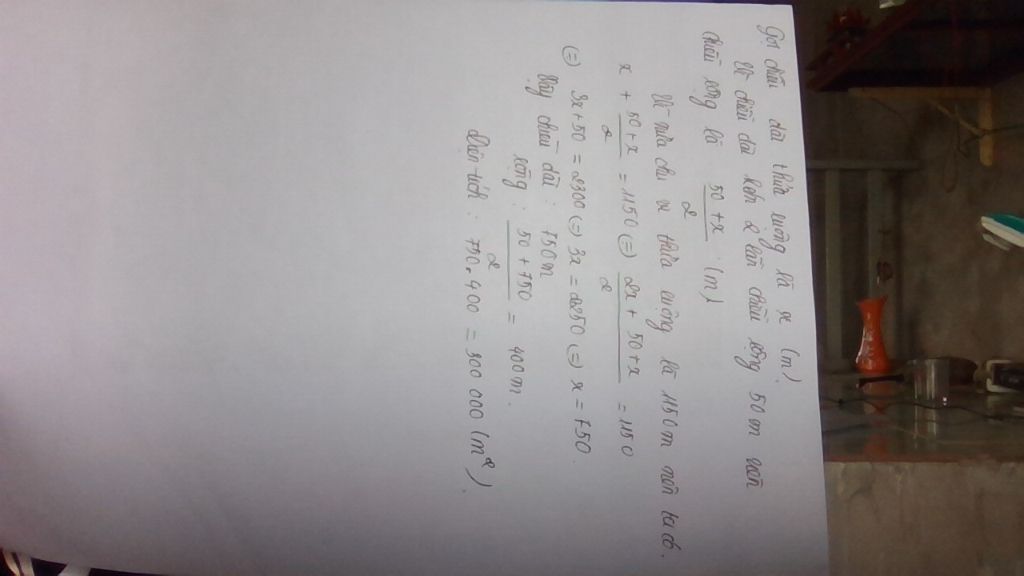 Gọi chiều dài thửa ruộng là x (m)
Vì chiều dài kém 2 lần chiều rộng 50m nên
chiều rộng là 50+x/2 (m)
Vì nửa chu vi thửa ruộng là 1150m nên ta có.
x + 50+x/2 = 1150 (=) 2x + 50+x/2 = 1150
(=) 3x+50 = 2300 (=) 3x = 2250 (=) x = 750.
Vậy chiều dài : 750m
rộng : 50+750/2 = 400m.
Diện tích : 750.400 = 300 000 (m²).